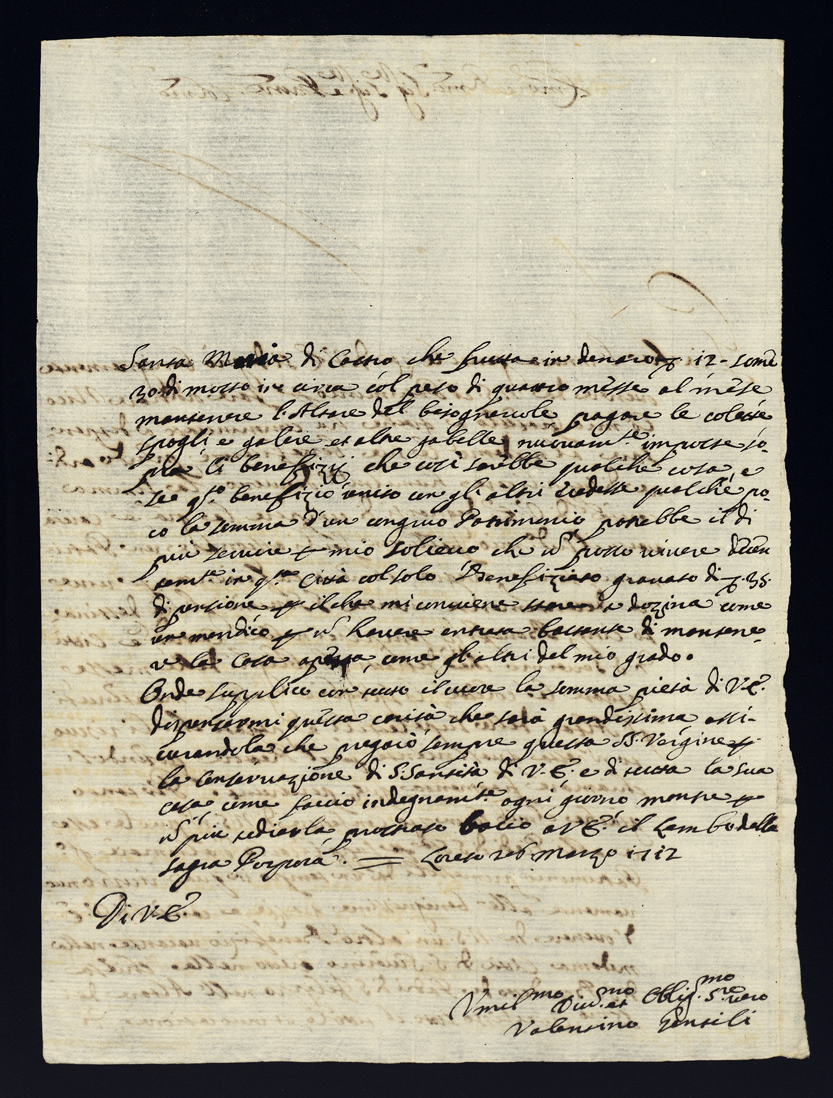 Santa Maria di Castro che frutta in denaro ꝫ 12 - some
30 di mosto in circa col peso di quattro messe al mese
mantenere l'Altare del bisognevole pagare le colette
spogli e galere et altre gabelle nuovam.te imposte so-
pra li benefizij che così sarebbe qualche cosa, e
se q.sto benefizio unito con gli altri qualche po-
co la somma d'un congruo Patrimonio potrebbe il di
più servire p mio solievo che nõ posso vivere
tem.te in q.sta Città col solo Benefiziato gravato di ꝫ 35
di pensione p il che mi conviene stare a dozina come
un mendico p nõ havere entrata bastante di mantene-
re la casa aperta, come gli altri del mio grado.
Onde supplico con tutto il cuore la somma pietà di V.E.
dispensarmi questa carità che sarà grandissima assi-
curandola che pregarò sempre questa SS. Vergine p
la conservazione di S. Santità di V.E. e di tutta la sua
casa come faccio indegnam.te ogni giorno mentre p
nõ più tediarla prostrato bacio a V.E. il Lembo della
sagra Porpora. = Loreto 26 Marzo 1712
Di V.E.
Umil.mo Div.mo et Oblig.mo S.re vero
Valentino Gentili